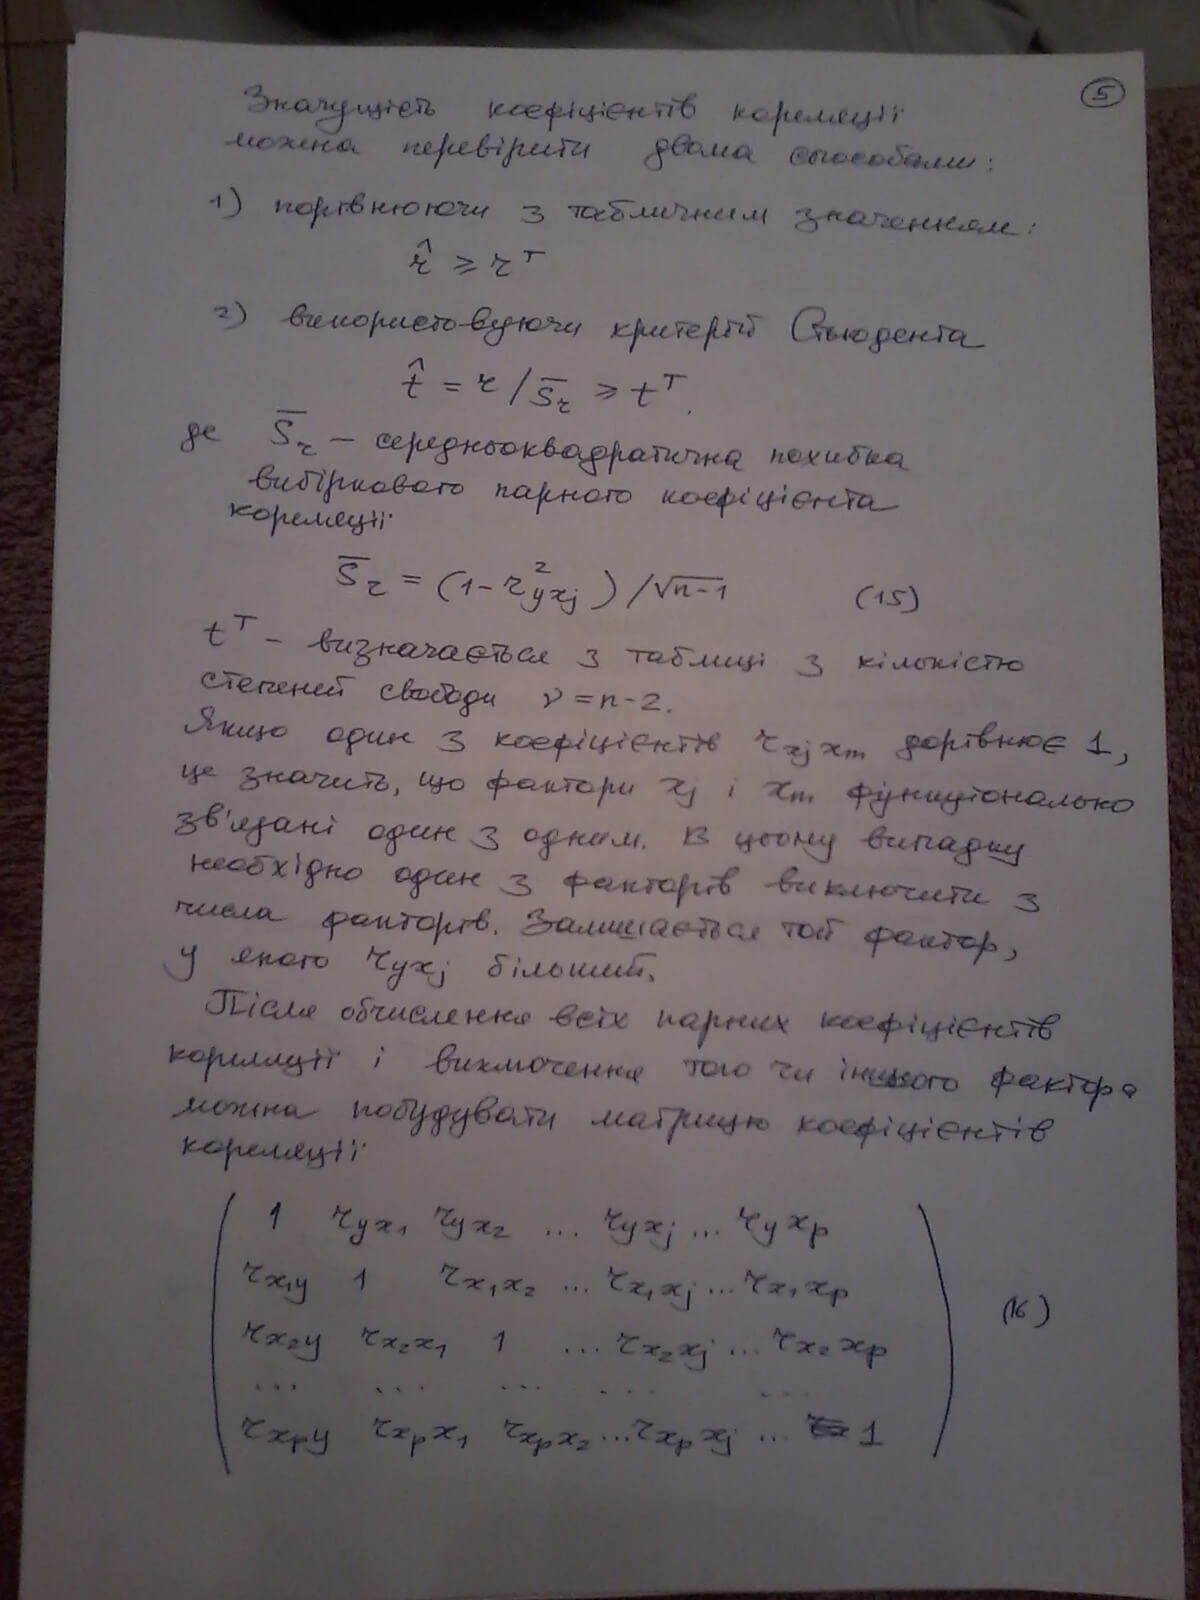 5
Значущість коефіцієнтів кореляції
можна перевірити двома способами:
1) порівнюючи з табличним значенням:
r̂ ⩾ r^T
2) використовуючи критерій Стьюдента
t̂ = r / S̄_r ⩾ t^T.
де S̄_r – середньоквадратична похибка
вибіркового парного коефіцієнта
кореляції
S̄_r = (1 - r²_yxj) / √n-1 (15)
t^T – визначається з таблиці з кількістю
степеней свободи ν = n - 2.
Якщо один з коефіцієнтів r_xjxm дорівнює 1,
це значить, що фактори xj і xm функціонально
зв'язані один з одним. В цьому випадку
необхідно один з факторів виключити з
числа факторів. Залишається той фактор,
у якого r_yxj більший.
Після обчислення всіх парних коефіцієнтів
кореляції і виключення того чи іншого фактора
можна побудувати матрицю коефіцієнтів
кореляції
1 r_yx1 r_yx2 ... r_yxj ... r_yxp
r_x1y 1 r_x1x2 ... r_x1xj ... r_x1xp
r_x2y r_x2x1 1 ... r_x2xj ... r_x2xp (16)
... ... ... ... ...
r_xpy r_xpx1 r_xpx2 ... r_xpxj ... 1